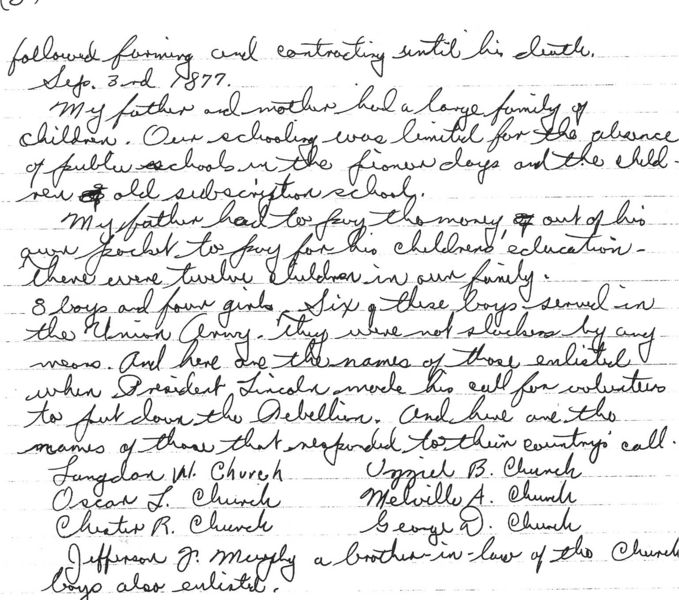 followed farming and contracting until his death.
Sep. 3rd 1877.
My father and mother had a large family of
children. Our schooling was limited for the absence
of public schools in the pioneer days and the child-
ren old subscription school.
My father had to pay the money out of his
own pocket to pay for his childrens' education-
there were twelve children in our family.
8 boys and four girls. Six of these boys served in
the Union Army. They were not slackers by any
means. And here are the names of those enlisted
when President Lincoln made his call for volunteers
to put down the Rebellion. And here are the
names of those that responded to their country's call.
Langdon W. Church Uzziel B. Church
Oscar L. Church Melville A. Church
Chester R. Church George D. Church
Jefferson J. Murphy a brother-in-law of the Church
boys also enlisted.